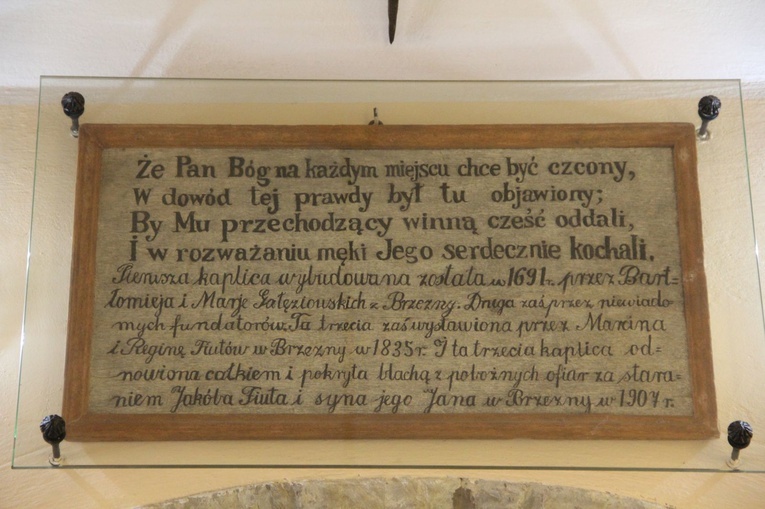 Że Pan Bóg na każdym miejscu chce być czcony,
W dowód tej prawdy był tu objawiony;
By Mu przechodzący winną cześć oddali,
I w rozważaniu męki Jego serdecznie kochali.
Pierwsza kaplica wybudowana została w 1691 r. przez Bart=
łomieja i Marję Gałęziowskich z Brzezny. Druga zaś przez niewiado=
mych fundatorów. Ta trzecia zaś wystawiona przez Marcina
i Reginę Fiutów w Brzezny w 1835 r. I ta trzecia kaplica od=
nowiona całkiem i pokryta blachą z pobożnych ofiar za stara=
niem Jakóba Fiuta i syna jego Jana w Brzezny w 1907 r.